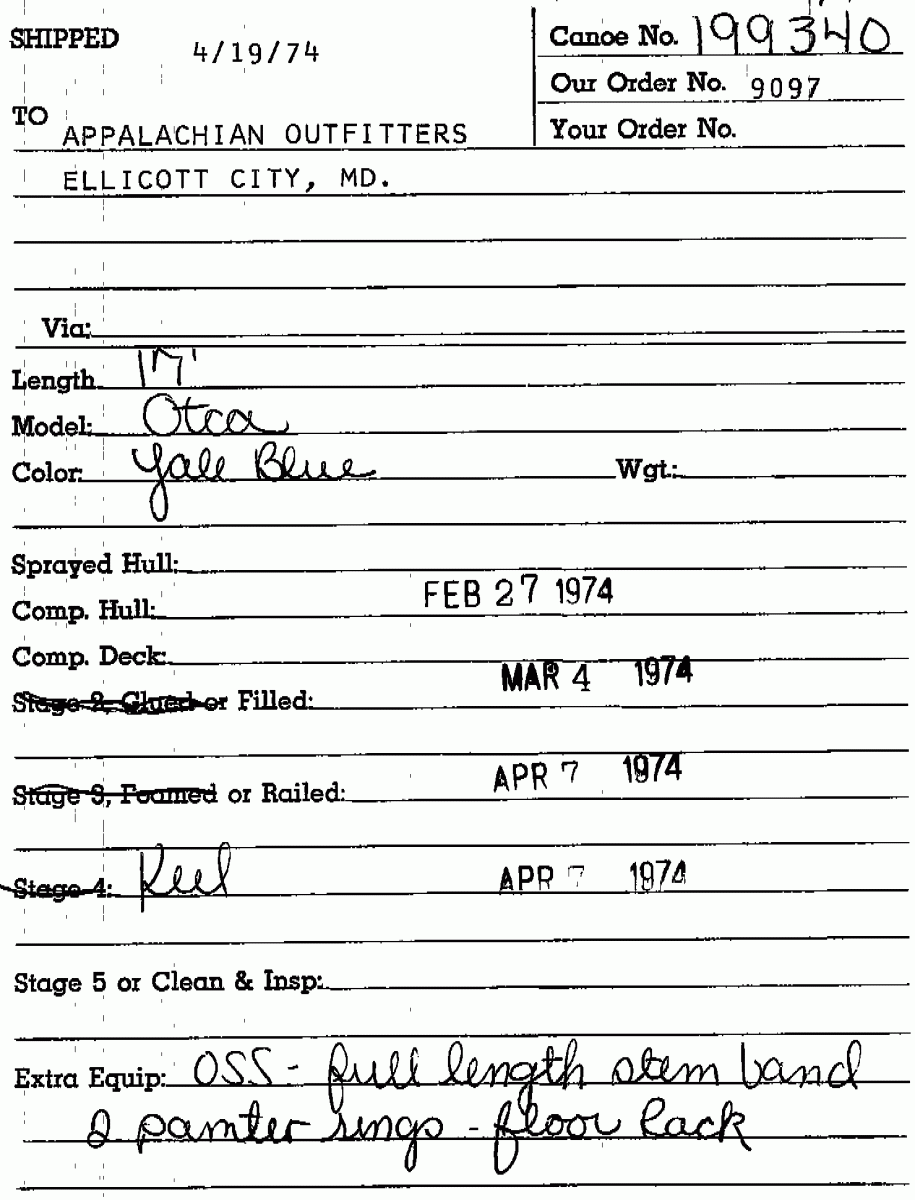 SHIPPED 4/19/74
Canoe No. 199340
Our Order No. 9097
TO APPALACHIAN OUTFITTERS
Your Order No.
ELLICOTT CITY, MD.
Via:
Length 17'
Model: Otca
Color: Yale Blue Wgt.:
Sprayed Hull:
Comp. Hull: FEB 27 1974
Comp. Deck:
Stage 2, Glued or Filled: MAR 4 1974
Stage 3, Foamed or Railed: APR 7 1974
Stage 4: Keel APR 7 1974
Stage 5 or Clean & Insp:
Extra Equip: OSS - full length stem band
2 painter rings - floor rack